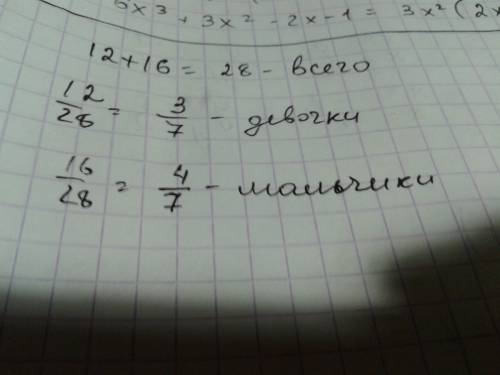 6x3 + 3x² - 2x - 1 = 3x² (2x
12 + 16 = 28 - всего
12/28 = 3/7 - девочки
16/28 = 4/7 - мальчики